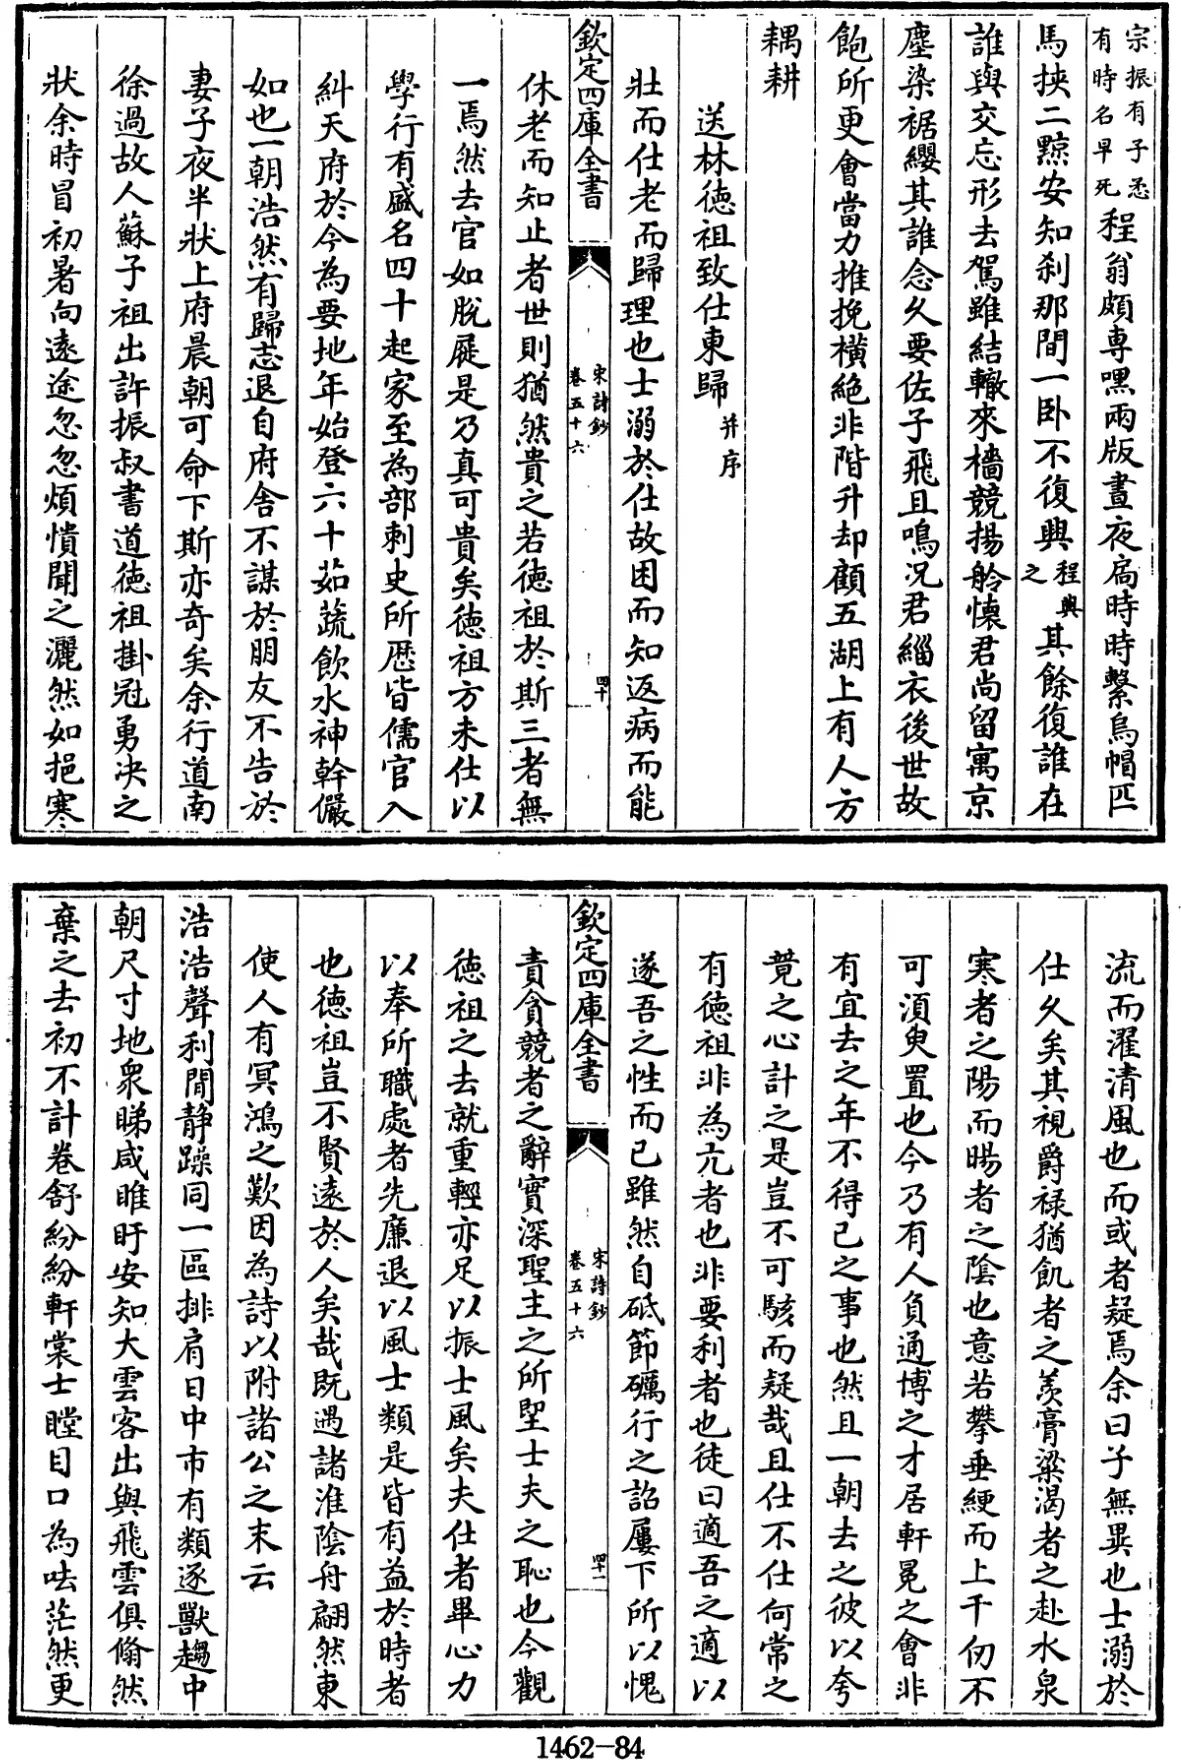 宗振有子忞
有時名早死程翁頗專嘿兩版晝夜扃時時繫烏帽匹
馬挾二黥安知刹那間一卧不復興程與之其餘復誰在
誰與交忘形去駕雖結轍來檣競揚舲懷君尚留寓京
塵染裾纓其誰念久要佐子飛且鳴况君緇衣後世故
飽所更會當力推挽橫絶非階升却顧五湖上有人方
耦耕
送林德祖致仕東歸并序
壯而仕老而歸理也士溺於仕故困而知返病而能
欽定四庫全書
宋詩鈔
卷五十六
四十
休老而知止者世則猶然貴之若德祖於斯三者無
一焉然去官如脫屣是乃真可貴矣德祖方未仕以
學行有盛名四十起家至為部刺史所歷皆儒官入
糾天府於今為要地年始登六十茹蔬飲水神幹儼
如也一朝浩然有歸志退自府舍不謀於朋友不告於
妻子夜半狀上府晨朝可命下斯亦奇矣余行道南
徐過故人蘇子祖出許振叔書道德祖掛冠勇决之
狀余時冒初暑向遠途忽忽煩憒聞之灑然如挹寒
流而濯清風也而或者疑焉余曰子無異也士溺於
仕久矣其視爵祿猶飢者之羨膏粱渴者之赴水泉
寒者之陽而暍者之陰也意若攀垂綆而上千仞不
可須臾置也今乃有人負通博之才居軒冕之會非
有宜去之年不得已之事也然且一朝去之彼以夸
竟之心計之是豈不可駭而疑哉且仕不仕何常之
有德祖非為亢者也非要利者也徒曰適吾之適以
遂吾之性而已雖然自砥節礪行之詔屢下所以愧
欽定四庫全書
宋詩鈔
卷五十六
四十一
責貪競者之辭實深聖主之所望士夫之恥也今觀
德祖之去就重輕亦足以振士風矣夫仕者畢心力
以奉所職處者先廉退以風士類是皆有益於時者
也德祖豈不賢遠於人矣哉既遇諸淮陰舟翩然東
使人有冥鴻之歎因為詩以附諸公之末云
浩浩聲利間静躁同一區排肩日中市有類逐獸趨中
朝尺寸地衆睇咸睢盱安知大雲客出與飛雲俱翛然
棄之去初不計卷舒紛紛軒裳士瞠目口為呿茫然更
1462—84